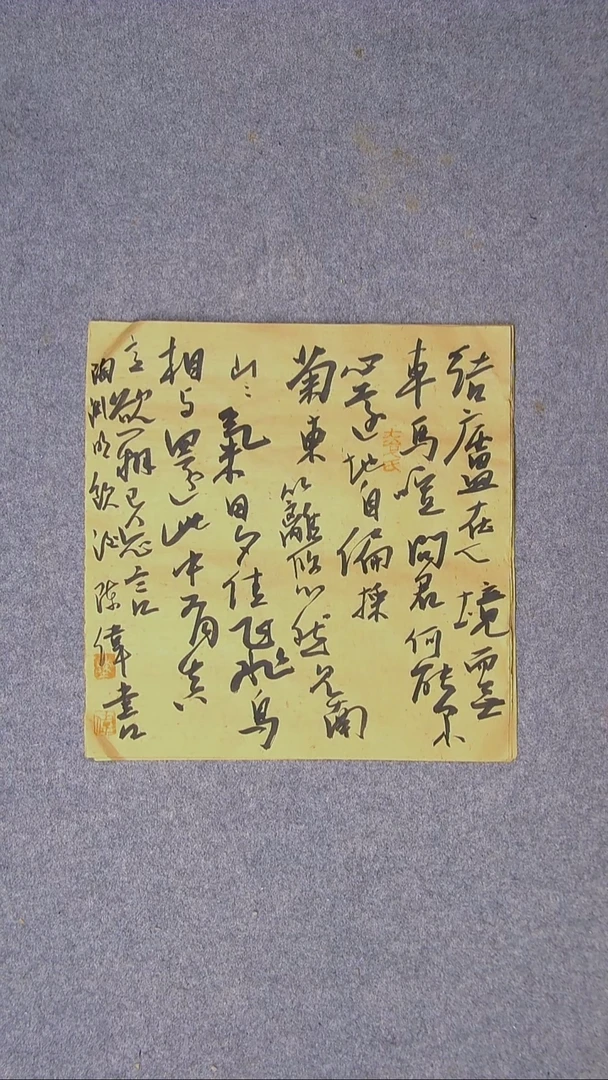 結廬在人境而無
車馬喧問君何能尔
心遠地自偏採
菊東籬悠然見南
山〻氣日夕佳飛鳥
相与還此中有真
意欲辨已忘言
陶渊明飲酒陳偉書